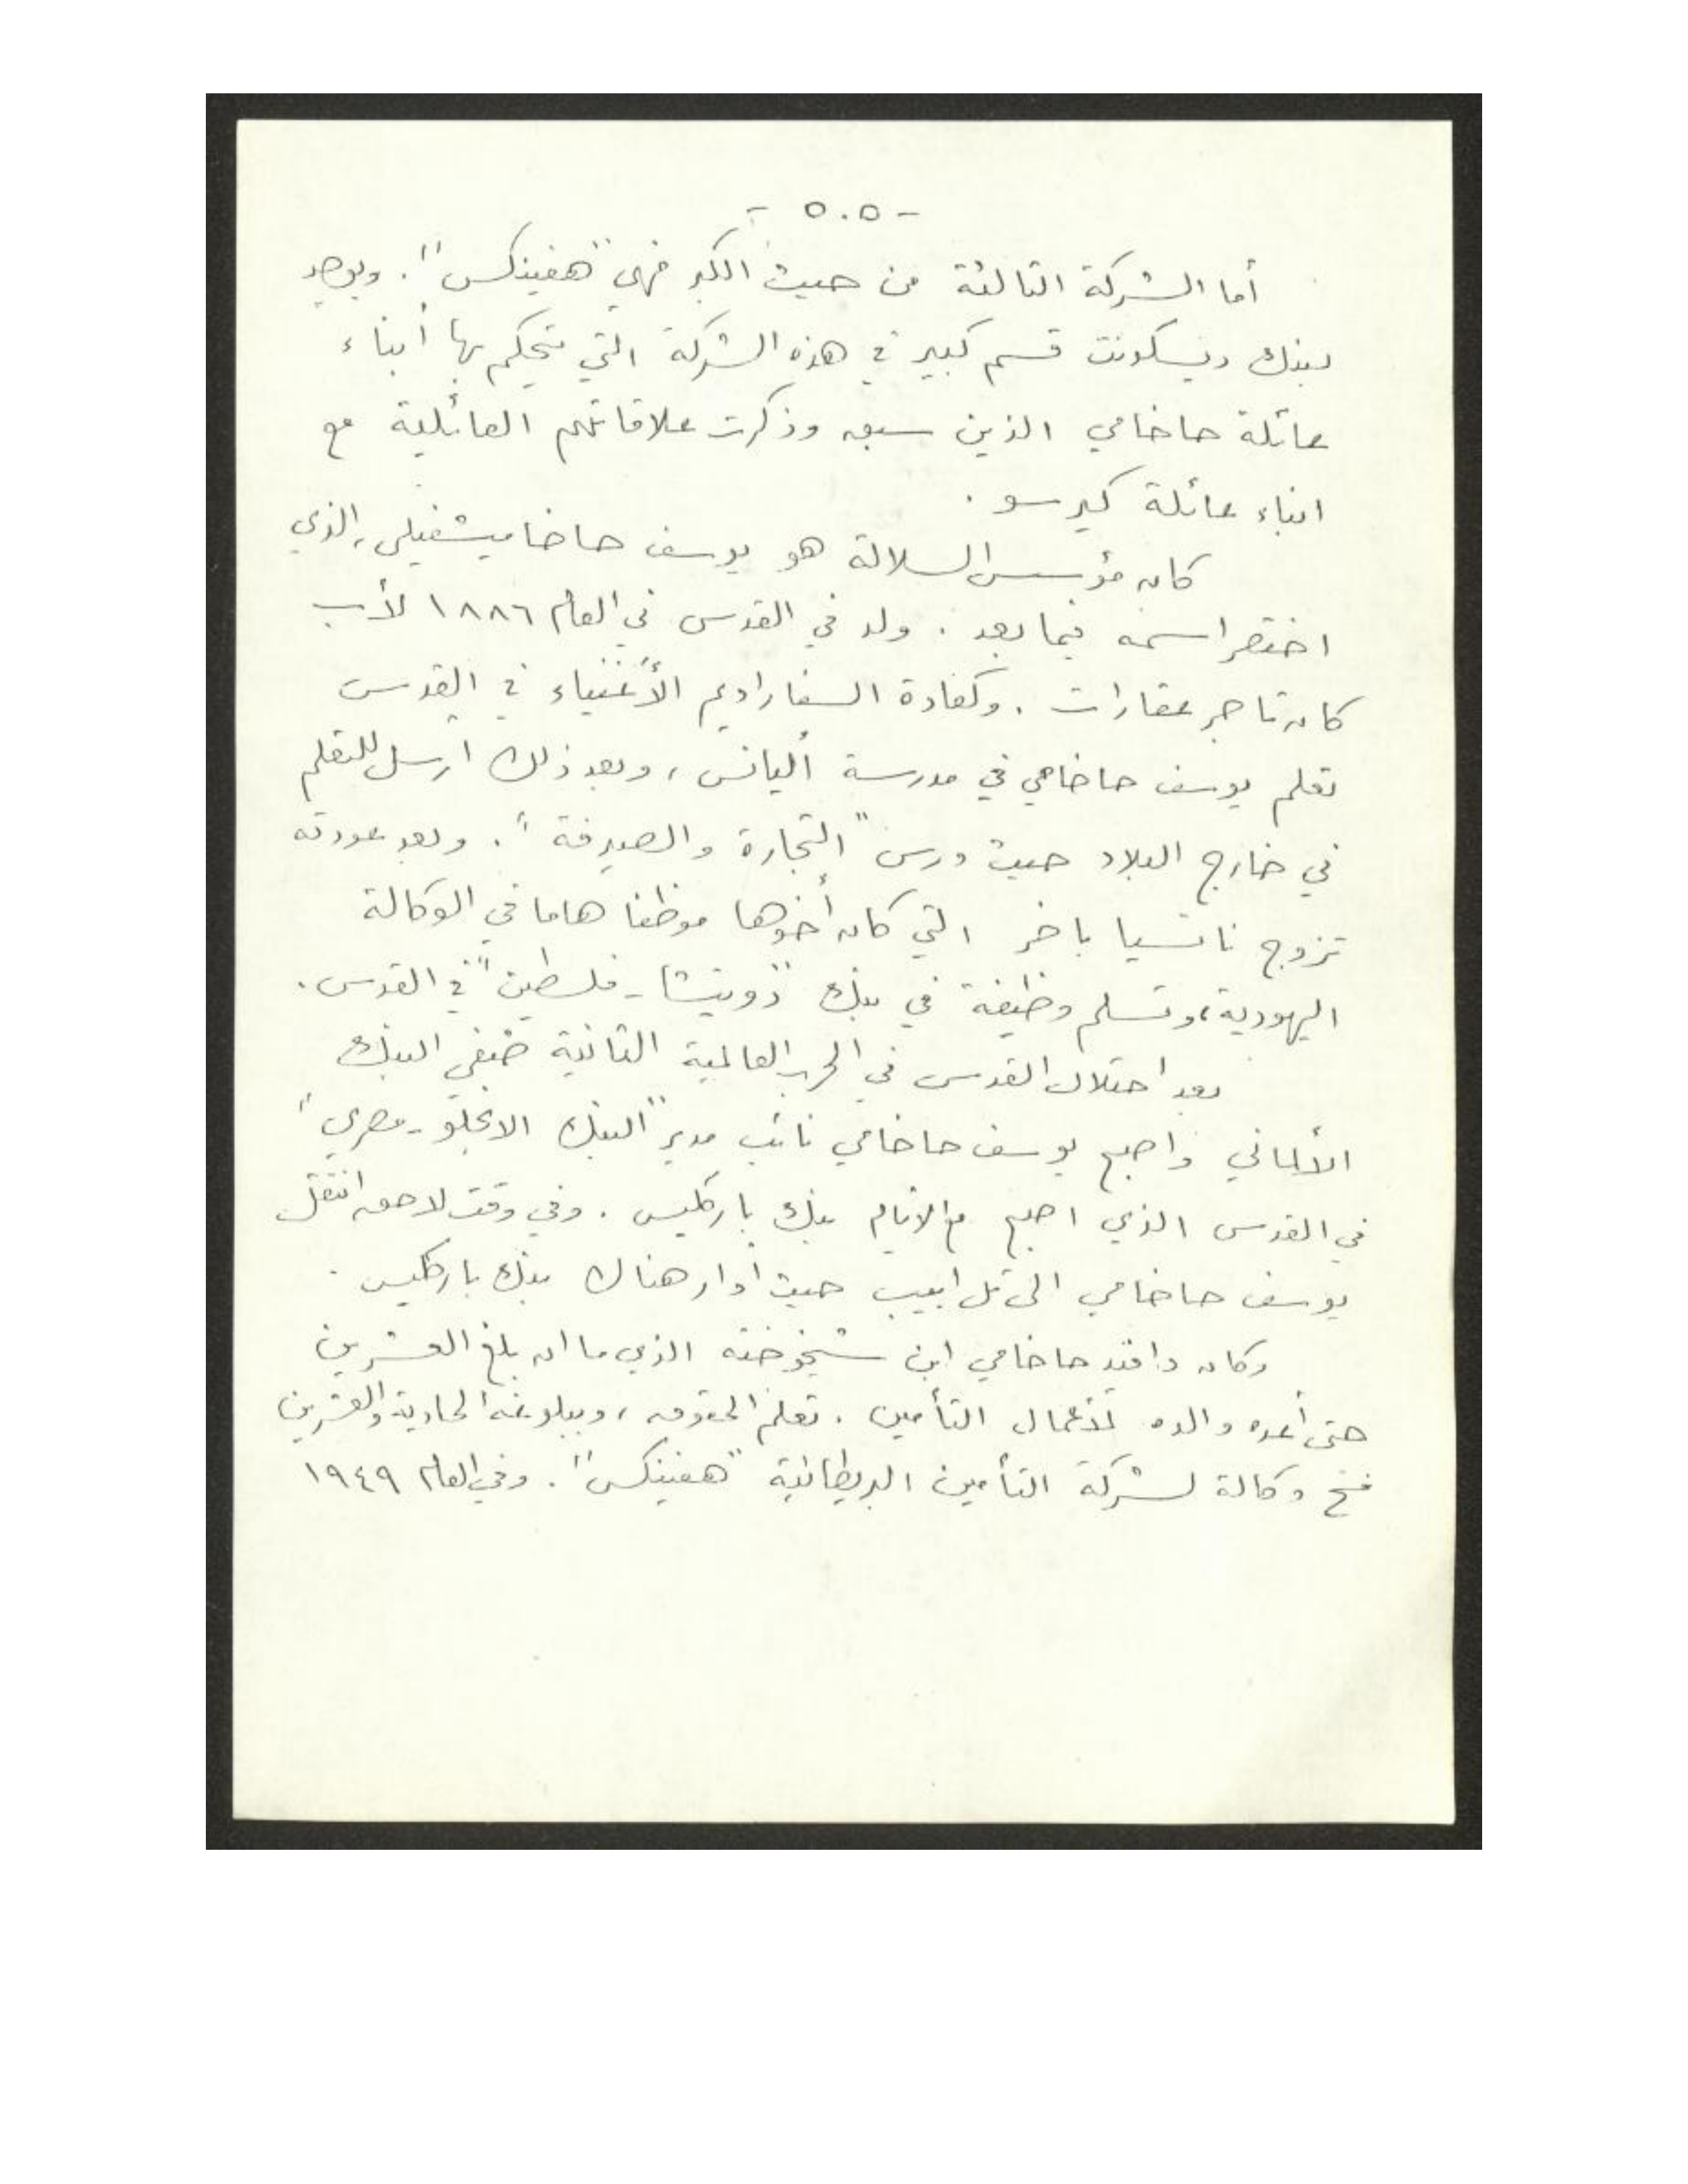 - ٥٠٥ -
أما الشركة الثالثة من حيث الكبر فهي "هفينكس". ويوجد
لبنك ديسكونت قسم كبير في هذه الشركة التي يتحكم بها أبناء
عائلة حاخامي الذين سبق وذكرت علاقاتهم العائلية مع
ابناء عائلة كيرسو .
كان مؤسس السلالة هو يوسف حاخاميشفيلي، الذي
اختصر اسمه فيما بعد . ولد في القدس في العام ١٨٨٦ لأب
كان تاجر عقارات . وكعادة السفاراديم الأغنياء في القدس
تعلم يوسف حاخامي في مدرسة أليانس، وبعد ذلك ارسل للتعلم
في خارج البلاد حيث درس "التجارة والصيرفة" . وبعد عودته
تزوج ناتسيا باخر التي كان أخوها موظفا هاما في الوكالة
اليهودية، وتسلم وظيفة في بنك "دويتشا - فلسطين" في القدس .
بعد احتلال القدس في الحرب العالمية الثانية صفي البنك
الألماني واصبح يوسف حاخامي نائب مدير "البنك الانجلو - مصري"
في القدس الذي اصبح مع الايام بنك باركليس . وفي وقت لاحق انتقل
يوسف حاخامي الى تل ابيب حيث أدار هناك بنك باركليس .
وكان دافيد حاخامي ابن شيخوخته الذي ما ان بلغ العشرين
حتى أعده والده لأعمال التأمين . تعلم الحقوق، وببلوغه الحادية والعشرين
فتح وكالة لشركة التأمين البريطانية "هفينكس" . وفي العام ١٩٤٩